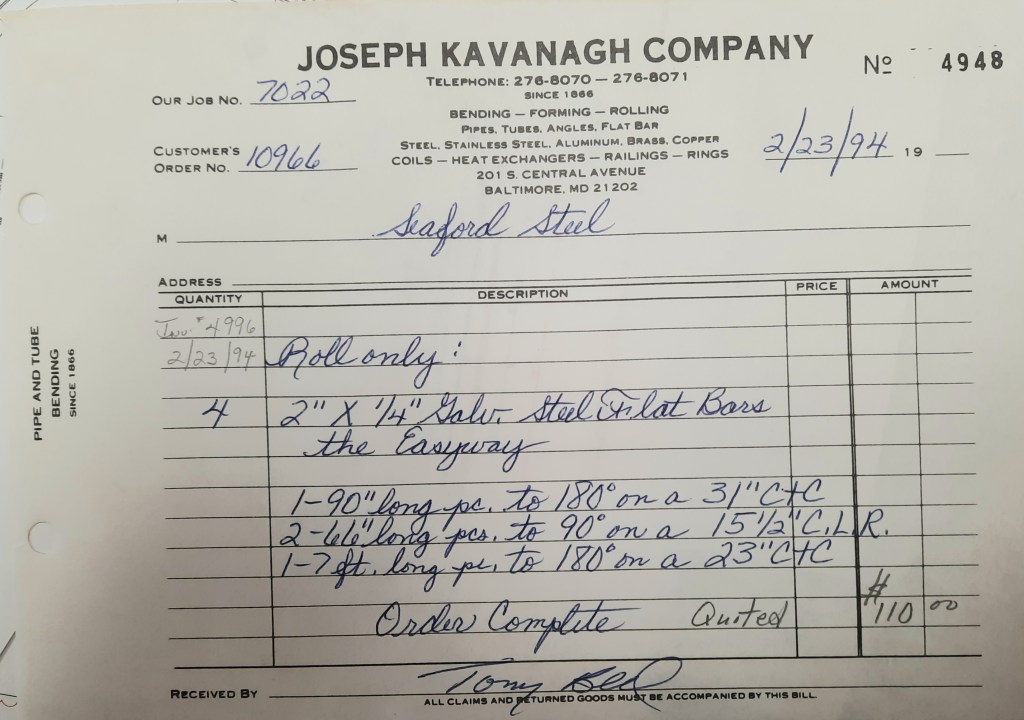 JOSEPH KAVANAGH COMPANY
Nº 4948
TELEPHONE: 276-8070 — 276-8071
SINCE 1866
OUR JOB NO. 7022
BENDING — FORMING — ROLLING
PIPES, TUBES, ANGLES, FLAT BAR
STEEL, STAINLESS STEEL, ALUMINUM, BRASS, COPPER
CUSTOMER'S
ORDER NO. 10966
COILS — HEAT EXCHANGERS — RAILINGS — RINGS
2/23/94 19
201 S. CENTRAL AVENUE
BALTIMORE, MD 21202
M Seaford Steel
ADDRESS
QUANTITY DESCRIPTION PRICE AMOUNT
Inv. # 4996
2/23/94 Roll only:
4 2" X 1/4" Galv. Steel Flat Bars
the Easyway
1-90" long pc. to 180° on a 31" C+C
2-66" long pcs. to 90° on a 15 1/2" C.L.R.
1-7 ft. long pc. to 180° on a 23" C+C
Order Complete Quoted $110 00
RECEIVED BY Tony
ALL CLAIMS AND RETURNED GOODS MUST BE ACCOMPANIED BY THIS BILL.
PIPE AND TUBE
BENDING
SINCE 1866